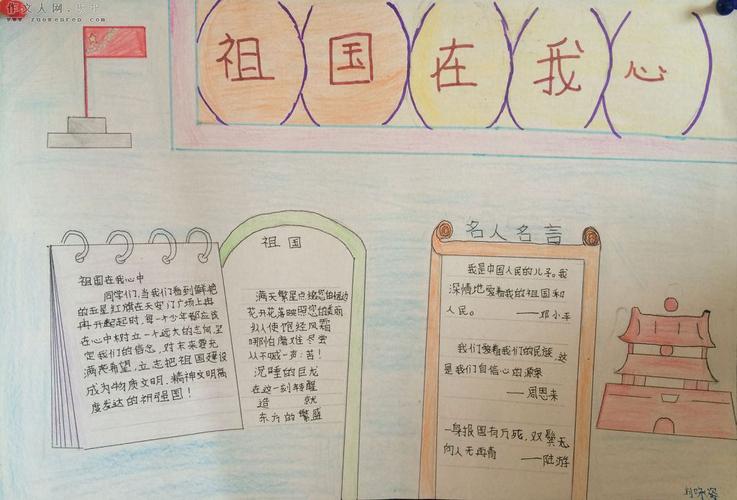 作文人网
www.zuowenren.com
祖国在我心
祖国在我心中
同学们,当我们看到鲜艳
的五星红旗在天安门广场上冉
冉升起时,每一个少年都应该
在心中树立一个远大的志向,坚
定我们的信念,对未来要充
满希望,立志把祖国建设
成为物质文明,精神文明高
度发达的祖强国!
祖国
满天繁星点缀您的
花开花落映照您的美丽
纵使饱经风霜
哪怕磨难尽尝
从不喊一声:苦!
沉睡的巨龙
在这一刻苏醒
造 就
东方的繁盛
名人名言
我是中国人民的儿子。我
深情地爱着我的祖国和
人民。 ——邓小平
我们爱着我们的民族,这
是我们自信心的源泉
——周恩来
一身报国有万死,双鬓无
向人无再青 ——陆游